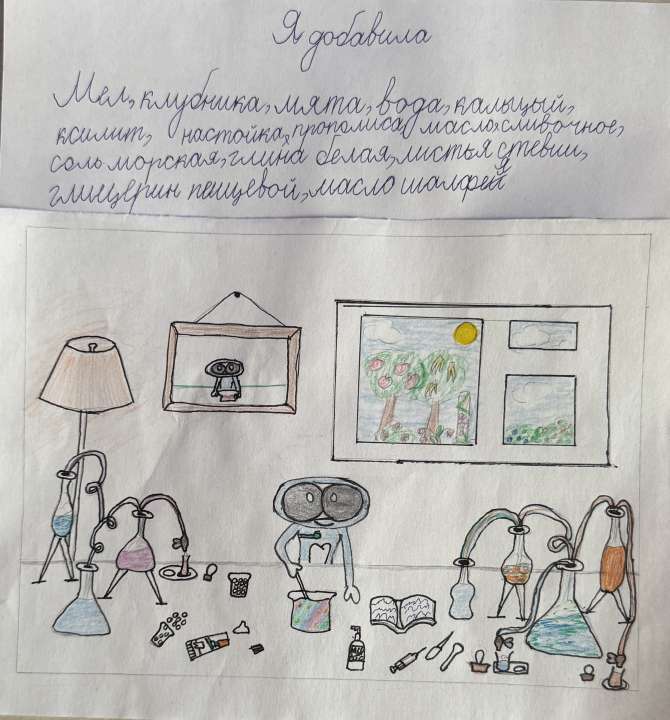 Я добавила
Мел, клубника, мята, вода, кальцый,
ксилит, настойка прополиса, масло сливочное,
соль морская, глина белая, листья стевии,
глицерин пещевой, масло шалфея